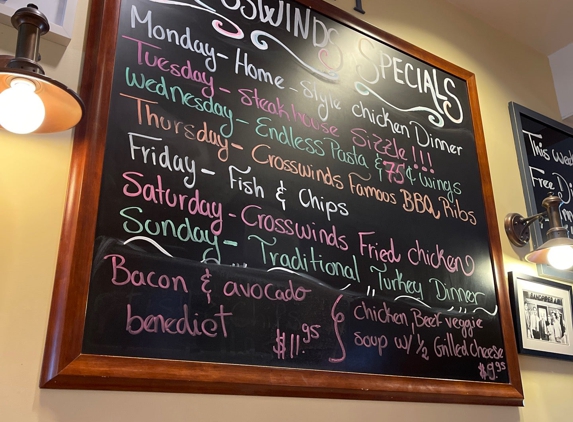 SPECIALS
Monday - Home-style chicken Dinner
Tuesday - Steakhouse Sizzle!!!
Wednesday - Endless Pasta & 75¢ wings
Thursday - Crosswinds Famous BBQ Ribs
Friday - Fish & Chips
Saturday - Crosswinds Fried chicken
Sunday - Traditional Turkey Dinner
Bacon & avocado
benedict
$11.95
Chicken, Beef veggie
soup w/ ½ Grilled Cheese
$9.95
This
Free